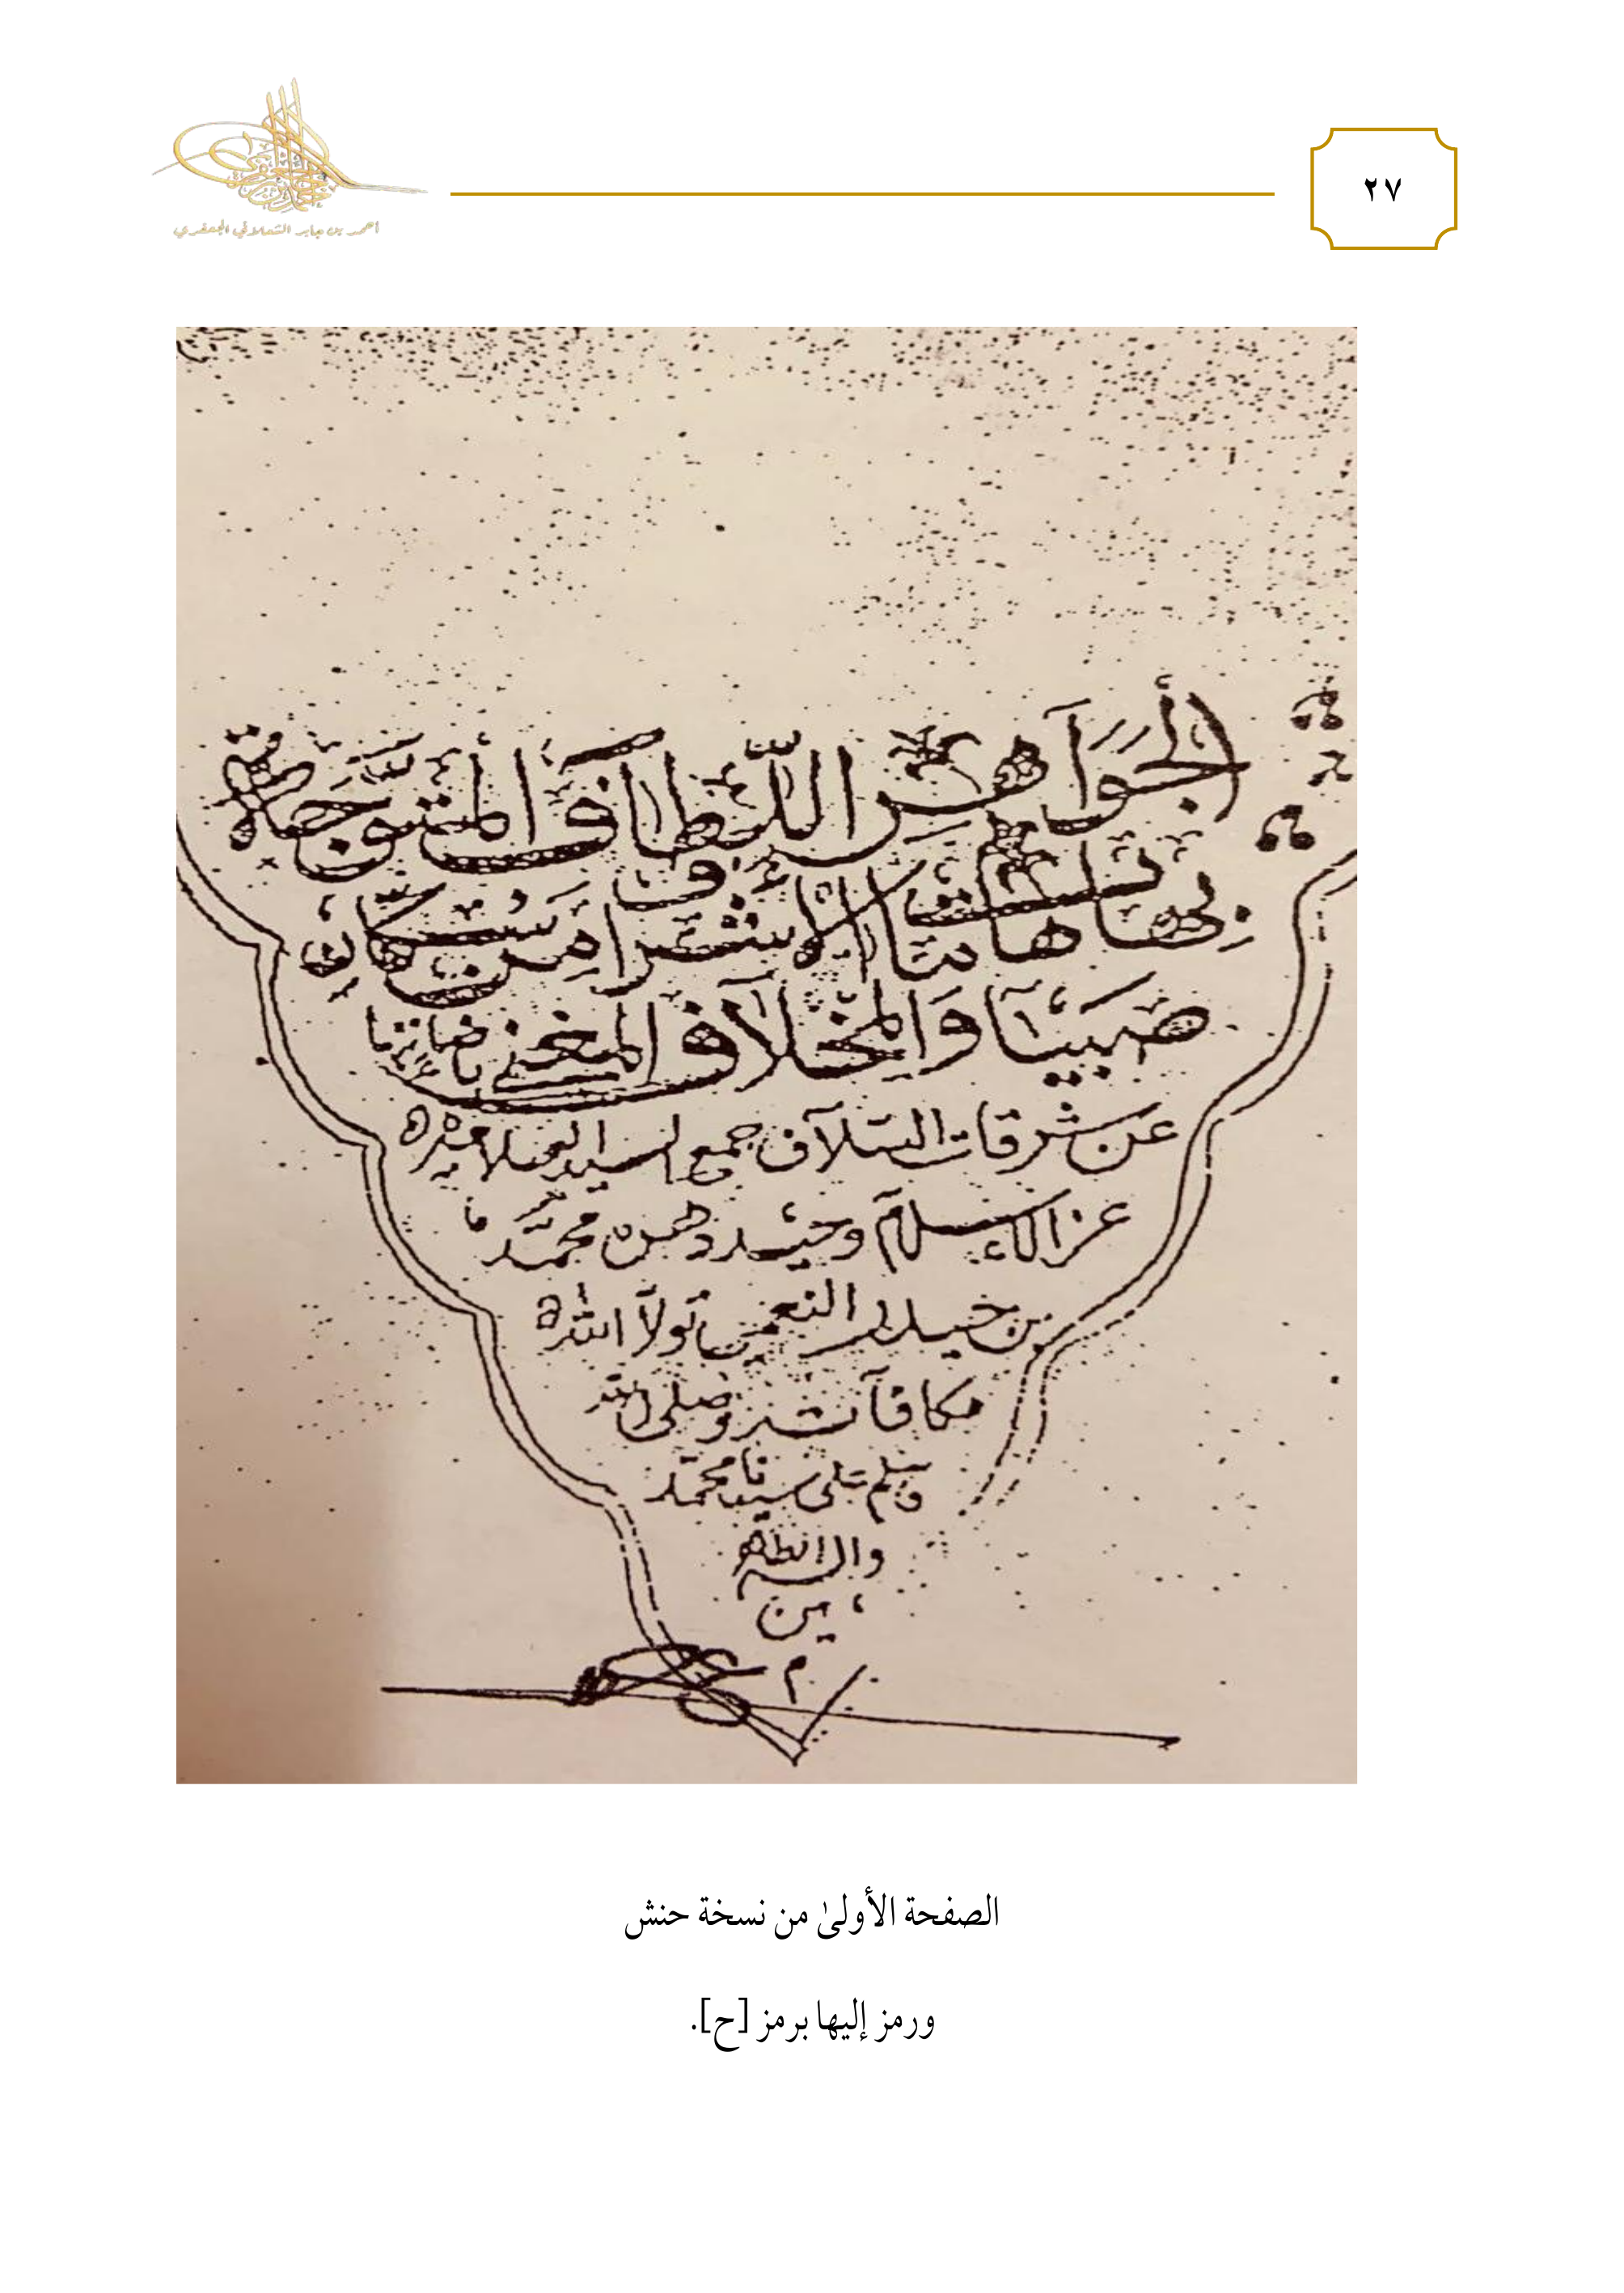 ٢٧
أحمد بن جابر الشعلاني الجعفري
الجواهر اللطاف المتوجة
بهامات الاشراف من سكان
صبيا والمخلاف المغني
عن شرقات السلاف جمع السيد العلامه
عز الاسلام وحيد دهره محمد
بن حيدر النعمي تولا الله
مكافآته وصلى الله
وسلم على سيدنا محمد
واله الطاهر
ين
م
الصفحة الأولىٰ من نسخة حنش
ورمز إليها برمز [ح].